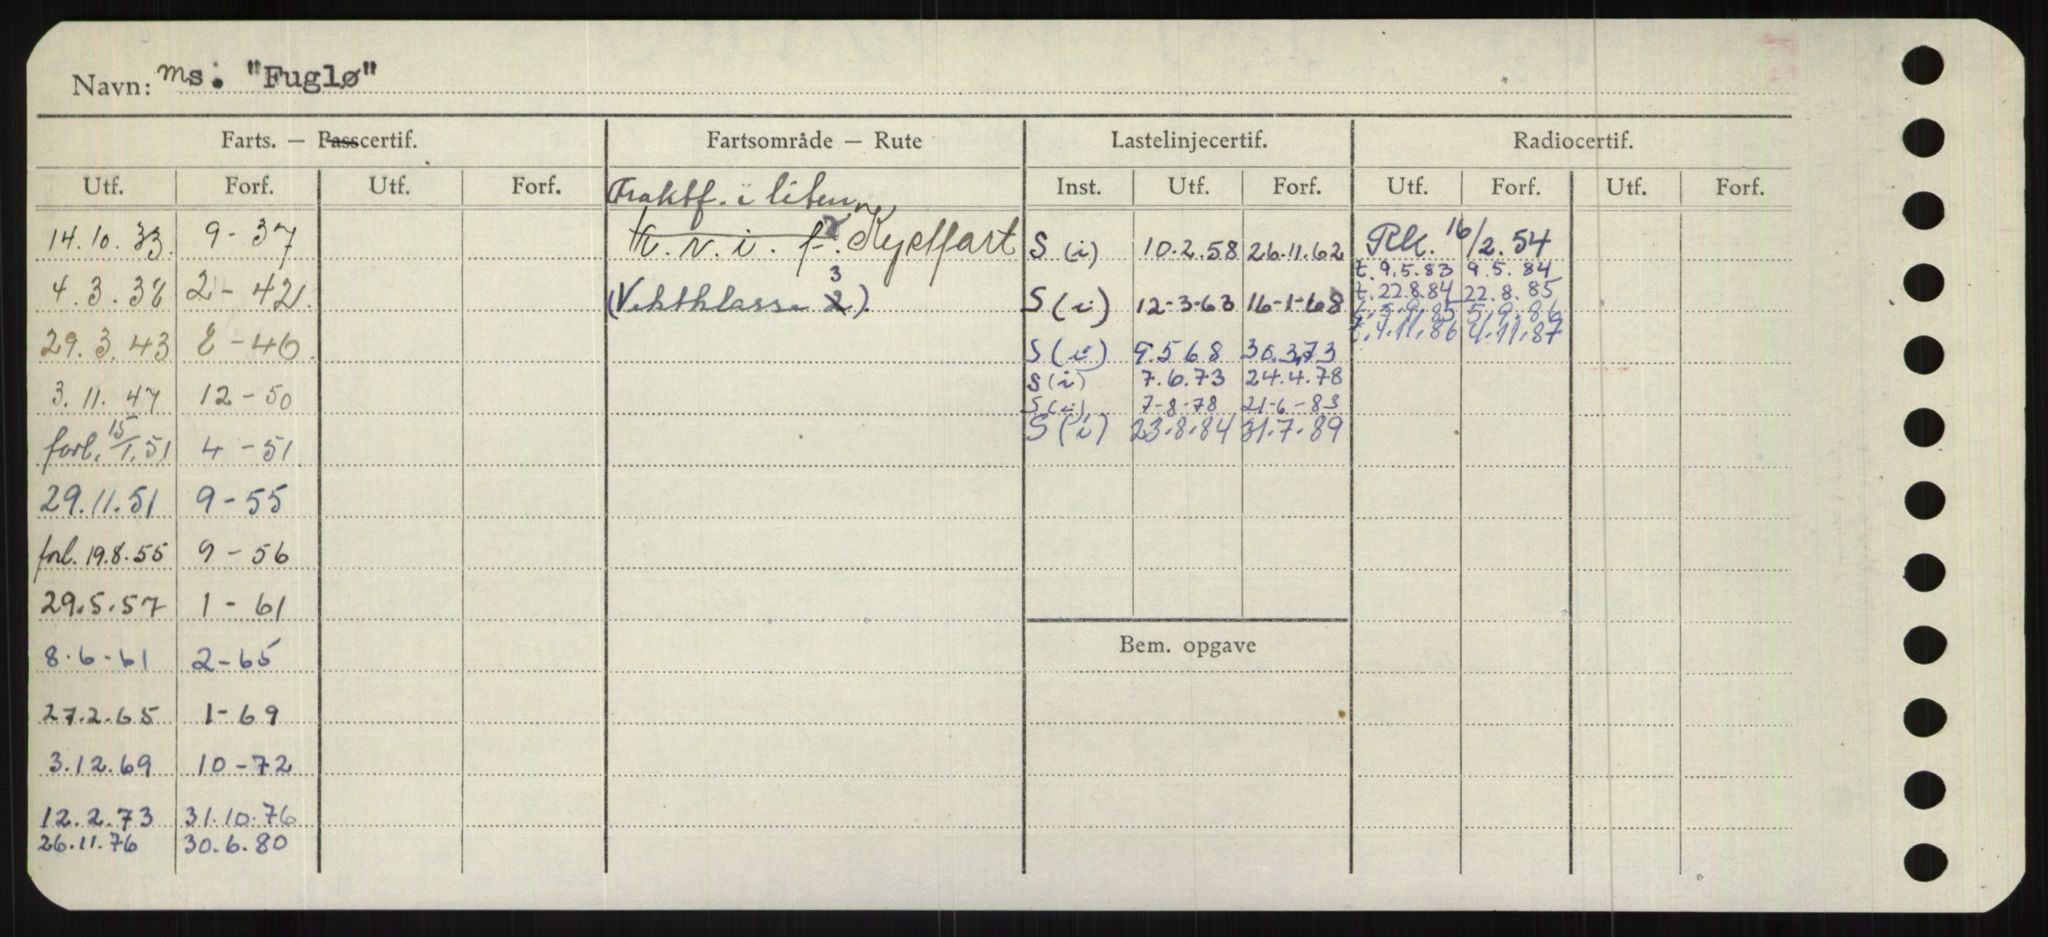 Navn: ms: "Fuglø"
Farts. — Passcertif. Fartsområde — Rute Lastelinjecertif. Radiocertif.
Utf. Forf. Utf. Forf. Inst. Utf. Forf. Utf. Forf. Utf. Forf.
Fraktf. i liten
14.10.33. 9-37 K.v.i.f. Kystfart S (i) 10.2.58 26.11.62 Rk. 16/2.54
t. 9.5.83 9.5.84
4.3.38 2-42. (Vektklasse 2 3). S (i) 12-3-63 16-1-68 t. 22.8.84 22.8.85
t. 5.9.85 5.9.86
t. 4.11.86 4.11.87
29.3.43 8-46. S (i) 9.5 68 30.3.73
3.11.47 12-50 S (i) 7.6.73 24.4.78
S (i) 7-8-78 21-6-83
forl. 15/1.51 4-51 S (i) 23.8.84 31.7.89
29.11.51 9-55
forl. 19.8.55 9-56
29.5.57 1-61
Bem. opgave
8-6-61 2-65
27.2.65 1-69
3.12.69 10-72
12.2.73 31.10.76
26.11.76 30.6.80